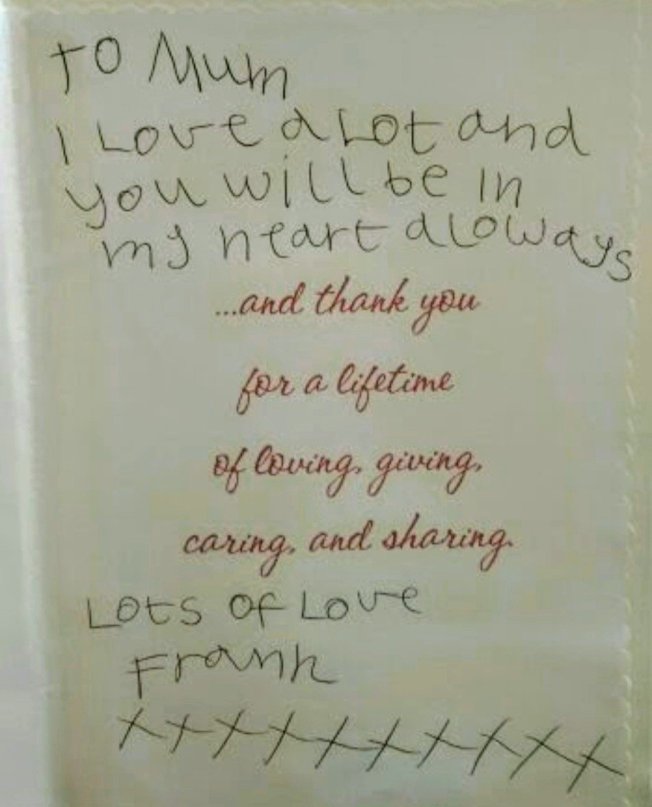 To Mum
I Love a Lot and
you will be in
my heart aloways
...and thank you
for a lifetime
of loving, giving,
caring, and sharing.
Lots of Love
Frank
xxxxxxxxxx